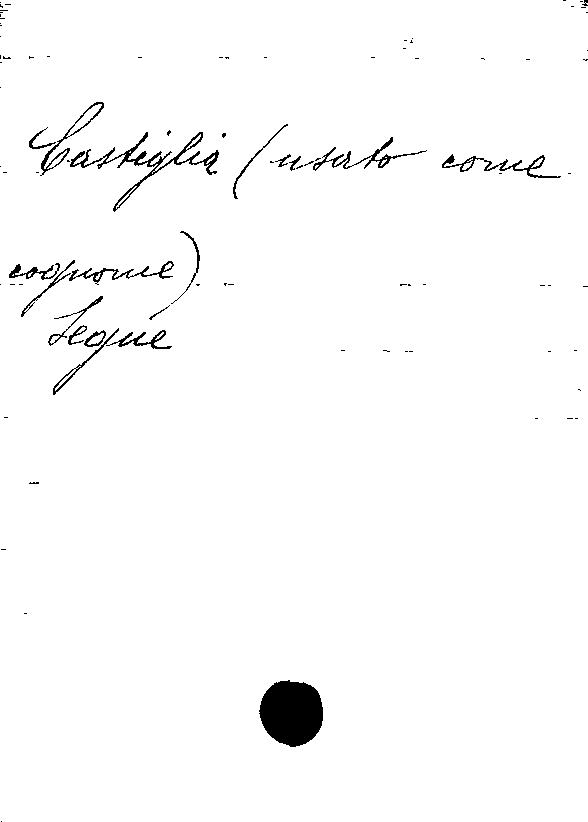 Castiglia (usato come
cognome)
Segue